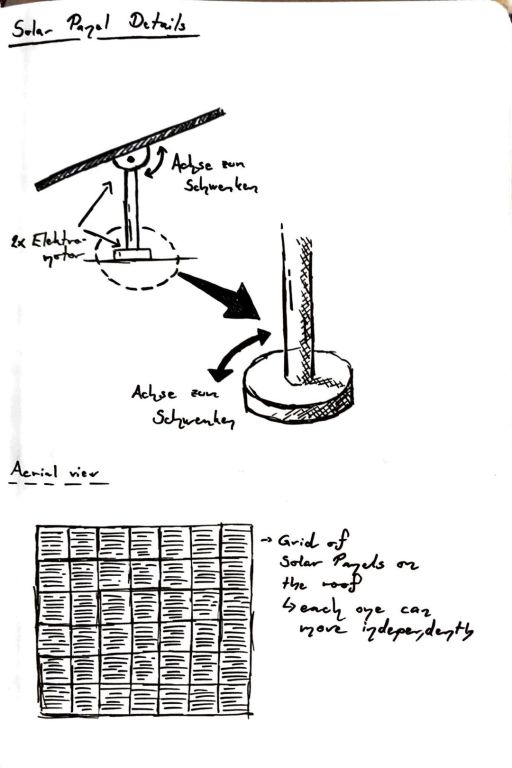 Solar Panel Details
Achse zum
Schwenken
2x Elektro-
motor
Achse zum
Schwenken
Aerial view
→ Grid of
Solar Panels on
the roof
↳ each one can
move independently